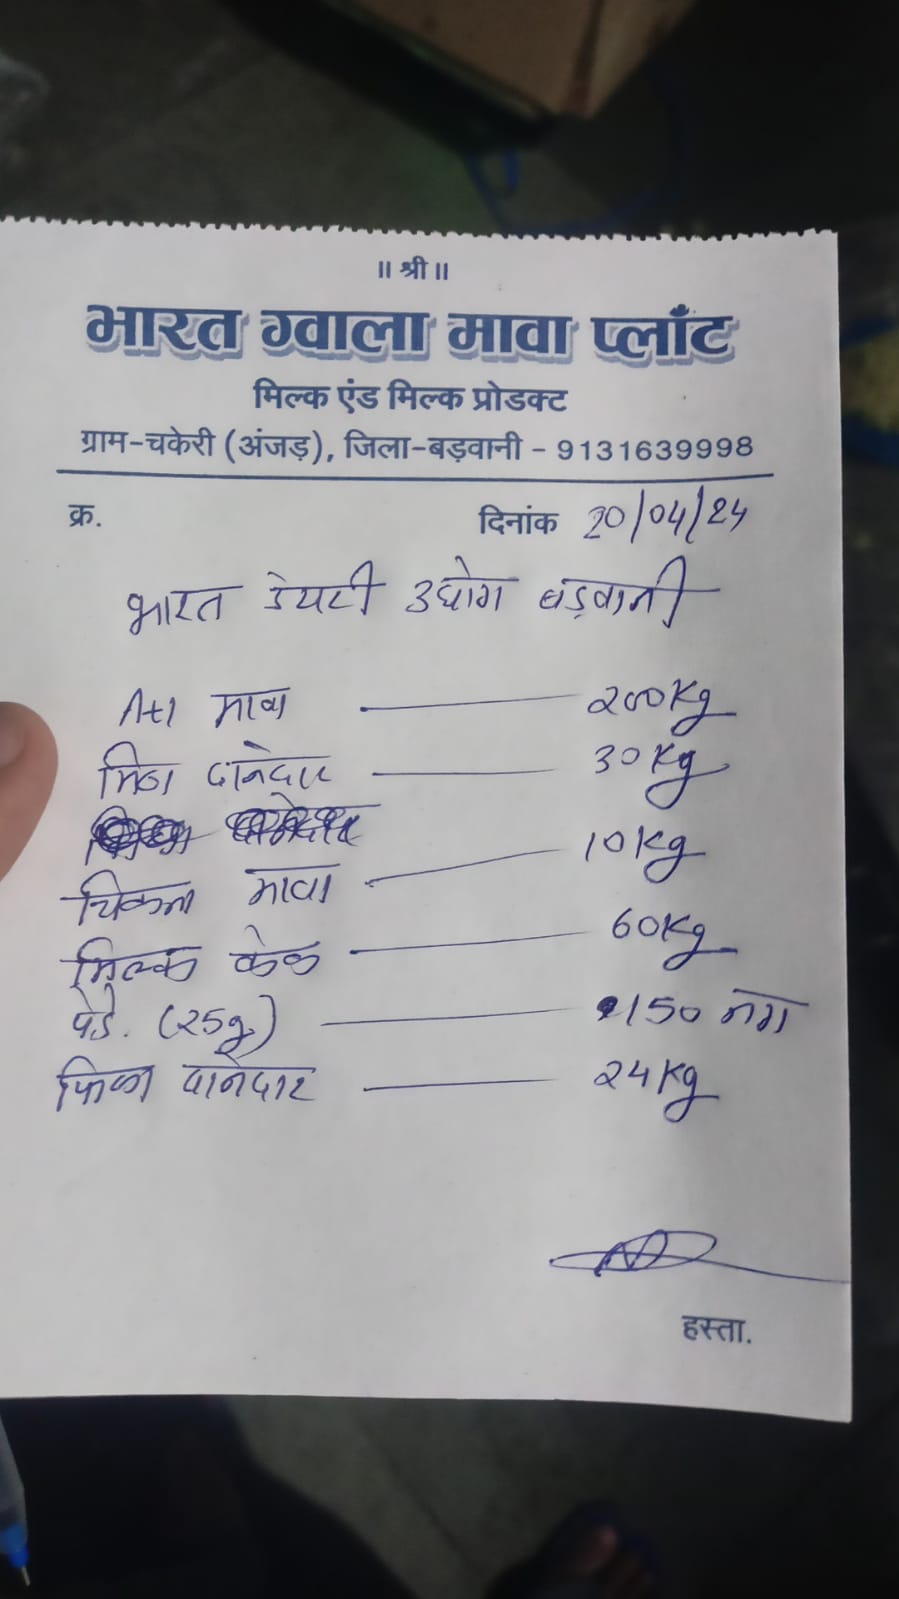 ॥ श्री ॥
भारत ग्वाला मावा प्लाँट
मिल्क एंड मिल्क प्रोडक्ट
ग्राम-चकेरी (अंजड़), जिला-बड़वानी - 9131639998
क्र. दिनांक 20/04/24
भारत डेयरी उघोग बड़वानी
A+1 मावा — 200Kg
मिठा दानेदार — 30Kg
चिकना मावा — 10Kg
मिल्क केक — 60Kg
पेडे. (25g) — 150 नग
फिका दानेदार — 24Kg
हस्ता.